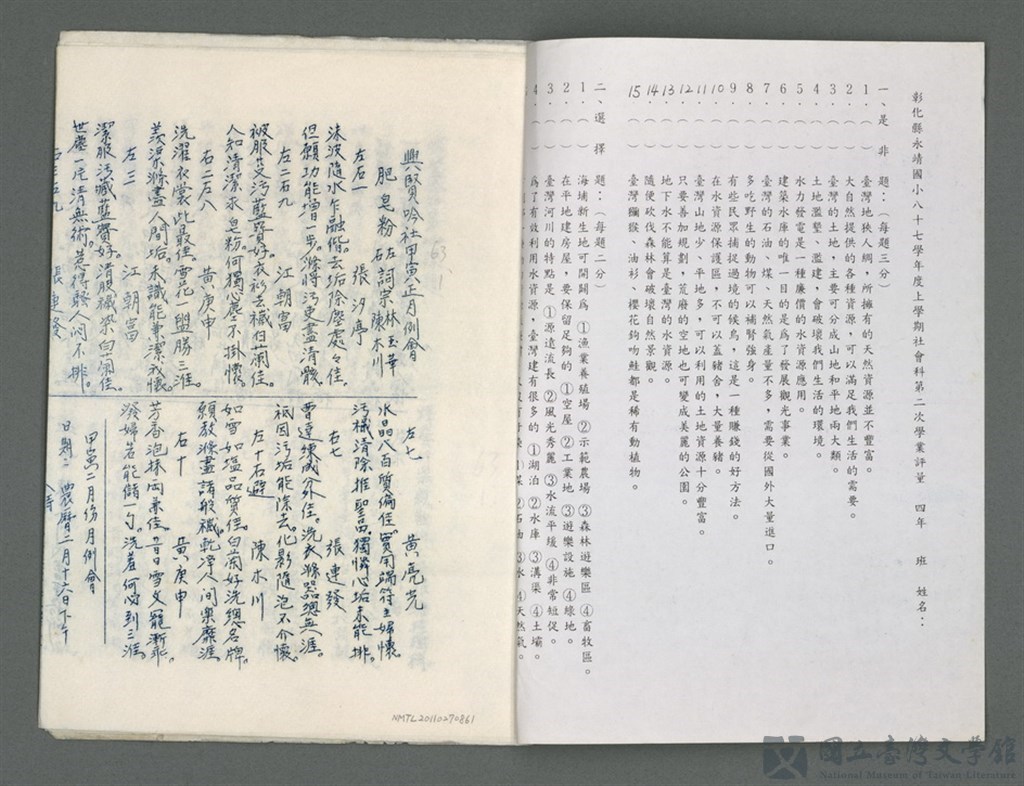 彰化縣永靖國小八十七學年度上學期社會科第二次學業評量　四年　班　姓名：
一、是非題：（每題三分）
1.（　）臺灣地狹人稠，所擁有的天然資源並不豐富。
2.（　）大自然提供的各種資源，可以滿足我們生活的需要。
3.（　）臺灣的土地，主要可分成山地和平地兩大類。
4.（　）土地濫墾、濫建，會破壞我們生活的環境。
5.（　）水力發電是一種廉價的水資源應用。
6.（　）建築水庫的唯一目的是為了發展觀光事業。
7.（　）臺灣的石油、煤、天然氣產量不多，需要從國外大量進口。
8.（　）多吃野生的動物可以補腎強身。
9.（　）有些民眾捕捉過境的候鳥，這是一種賺錢的好方法。
10.（　）在水資源保護區，不可以蓋豬舍，大量養豬。
11.（　）臺灣山地少、平地多，可以利用的土地資源十分豐富。
12.（　）只要善加規劃，荒廢的空地也可變成美麗的公園。
13.（　）地下水不能算是臺灣的水資源。
14.（　）隨便砍伐森林會破壞自然景觀。
15（　）臺灣獼猴、油杉、櫻花鉤吻鮭都是稀有動植物。
二、選擇題：（每題二分）
1.（　）海埔新生地可開闢為①漁業養殖場②示範農場③森林遊樂區④畜牧區。
2.（　）在平地建房屋，要保留足夠的①空屋②工業地③遊樂設施④綠地。
3.（　）臺灣河川的特點是①源遠流長②風光秀麗③水流平緩④非常短促。
4.（　）為了有效利用水資源，臺灣建有很多的①湖泊②水庫③溝渠④土壩。
興賢吟社甲寅正月例會
肥皂粉　左詞宗林玉華　右陳木川
左右一　張汐亭
漆波隨水乍融偕。去垢除塵處々佳。
但願功能增一步。滌將污吏盡清骸。
左二右九　江朝富
人知清潔永皂粉。何獨心塵不掛懷。
右二右八　黃庚申
洗濯衣裳此最佳。雪花与盥勝三淮。
羨渠滌盡人間垢。未識能兼潔我懷。
左三　江朝富
潔服污臧藍賢好。清服穢崇白蘭佳。
右三左九　張連發
左七　黃亮光
水晶八白質偏佳。實用端符主婦懷。
污穢清除推聖品。獨憐心垢未能排。
右七　張連發
曹達煉成分外佳。洗衣滌器總無涯。
祗因污垢能除去。化影隨泡不介懷。
左十右避　陳木川
如雪如塩品質佳。白蘭好洗總名牌。
願教滌盡諸般穢。乾淨人間樂靡涯。
右十　黃庚申
芳香泡抹固兼佳。昔日雪文寵漸乖。
潑婦若能儲一勺。洗羞何必到三淮。
甲寅二月份月例會
日期：農曆二月十六日下午
NMTL20110270861
國立臺灣文學館
National Museum of Taiwan Literature